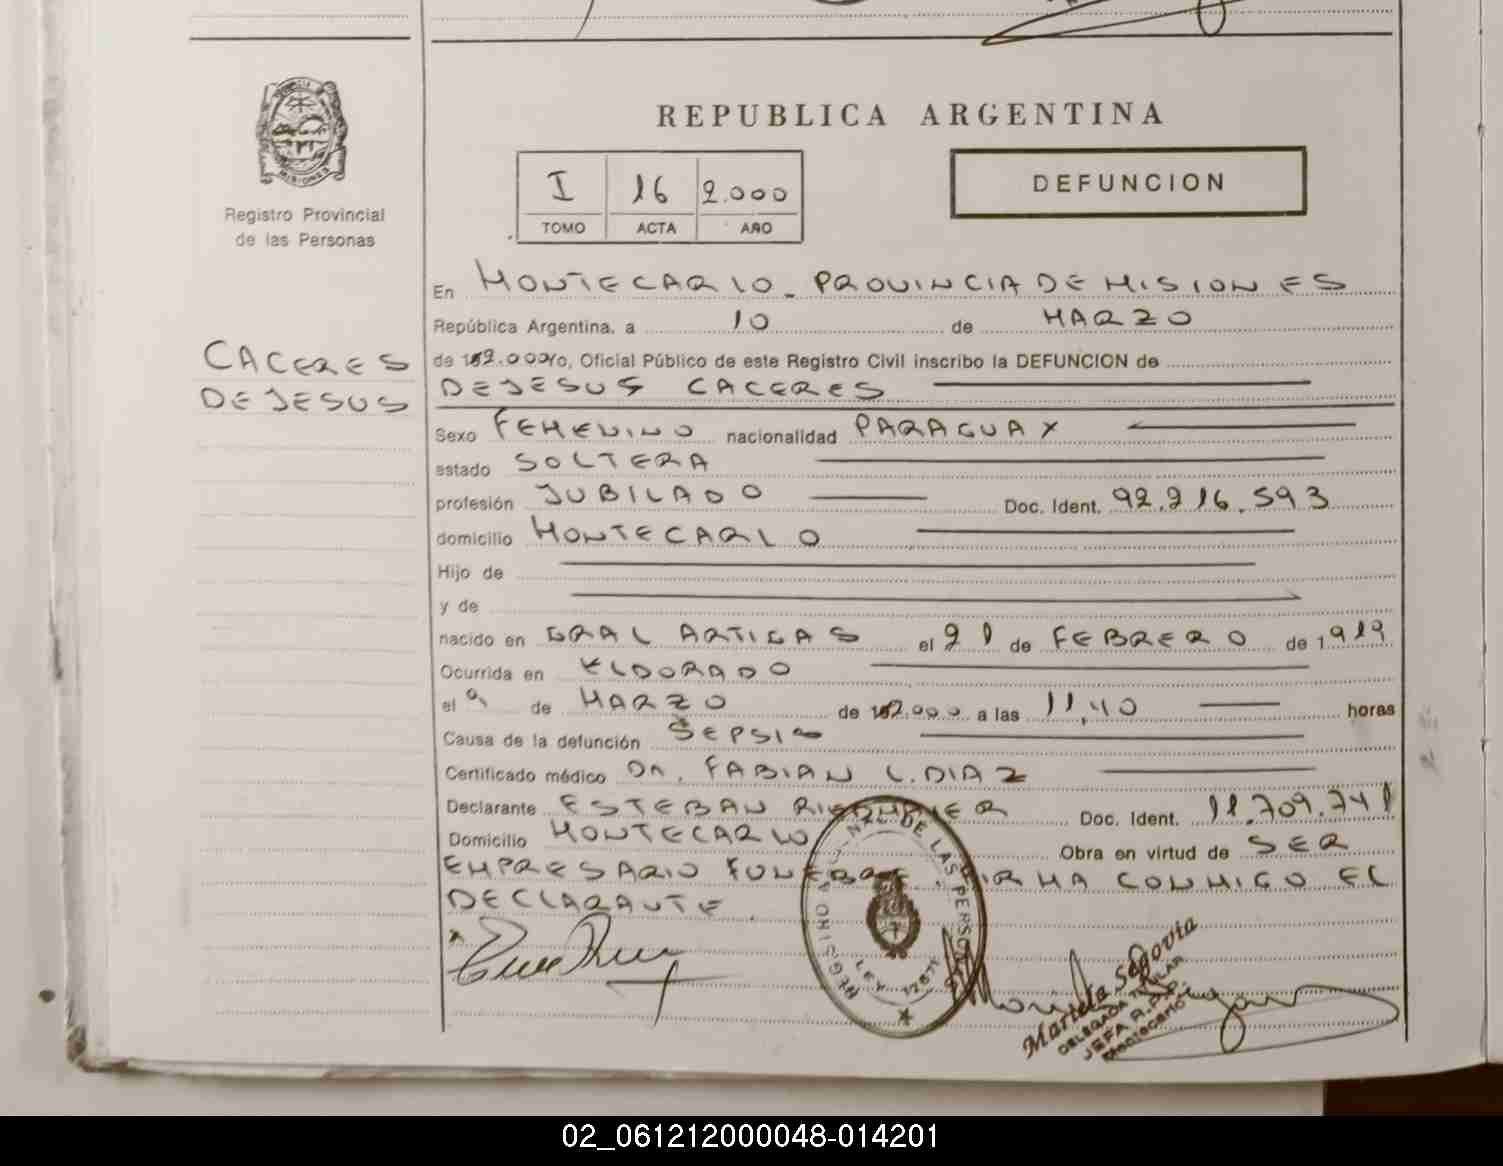 REPUBLICA ARGENTINA
MISIONES
Registro Provincial
de las Personas
I 16 2.000
TOMO ACTA AÑO
DEFUNCION
En MONTECARLO - PROVINCIA DE MISIONES
República Argentina, a 10 de MARZO
CACERES
DE JESUS
de 2.000 Yo, Oficial Público de este Registro Civil inscribo la DEFUNCION de
DE JESUS CACERES
Sexo FEMENINO nacionalidad PARAGUAY
estado SOLTERA
profesión JUBILADO Doc. Ident. 92.216.593
domicilio MONTECARLO
Hijo de
y de
nacido en GRAL ARTIGAS el 21 de FEBRERO de 1919
Ocurrida en ELDORADO
el 9 de MARZO de 2.000 a las 11,40 horas
Causa de la defunción SEPSIS
Certificado médico DR. FABIAN L. DIAZ
Declarante ESTEBAN Doc. Ident. 11.709.741
Domicilio MONTECARLO Obra en virtud de SER
EMPRESARIO FUNEBRE. FIRMA CONMIGO EL
DECLARANTE.
REGISTRO NAL. DE LAS PERSONAS
LEY 12671
Mariela Segovia
DELEGADA TITULAR
JEFA R.P.P.
Montecarlo
02_061212000048-014201